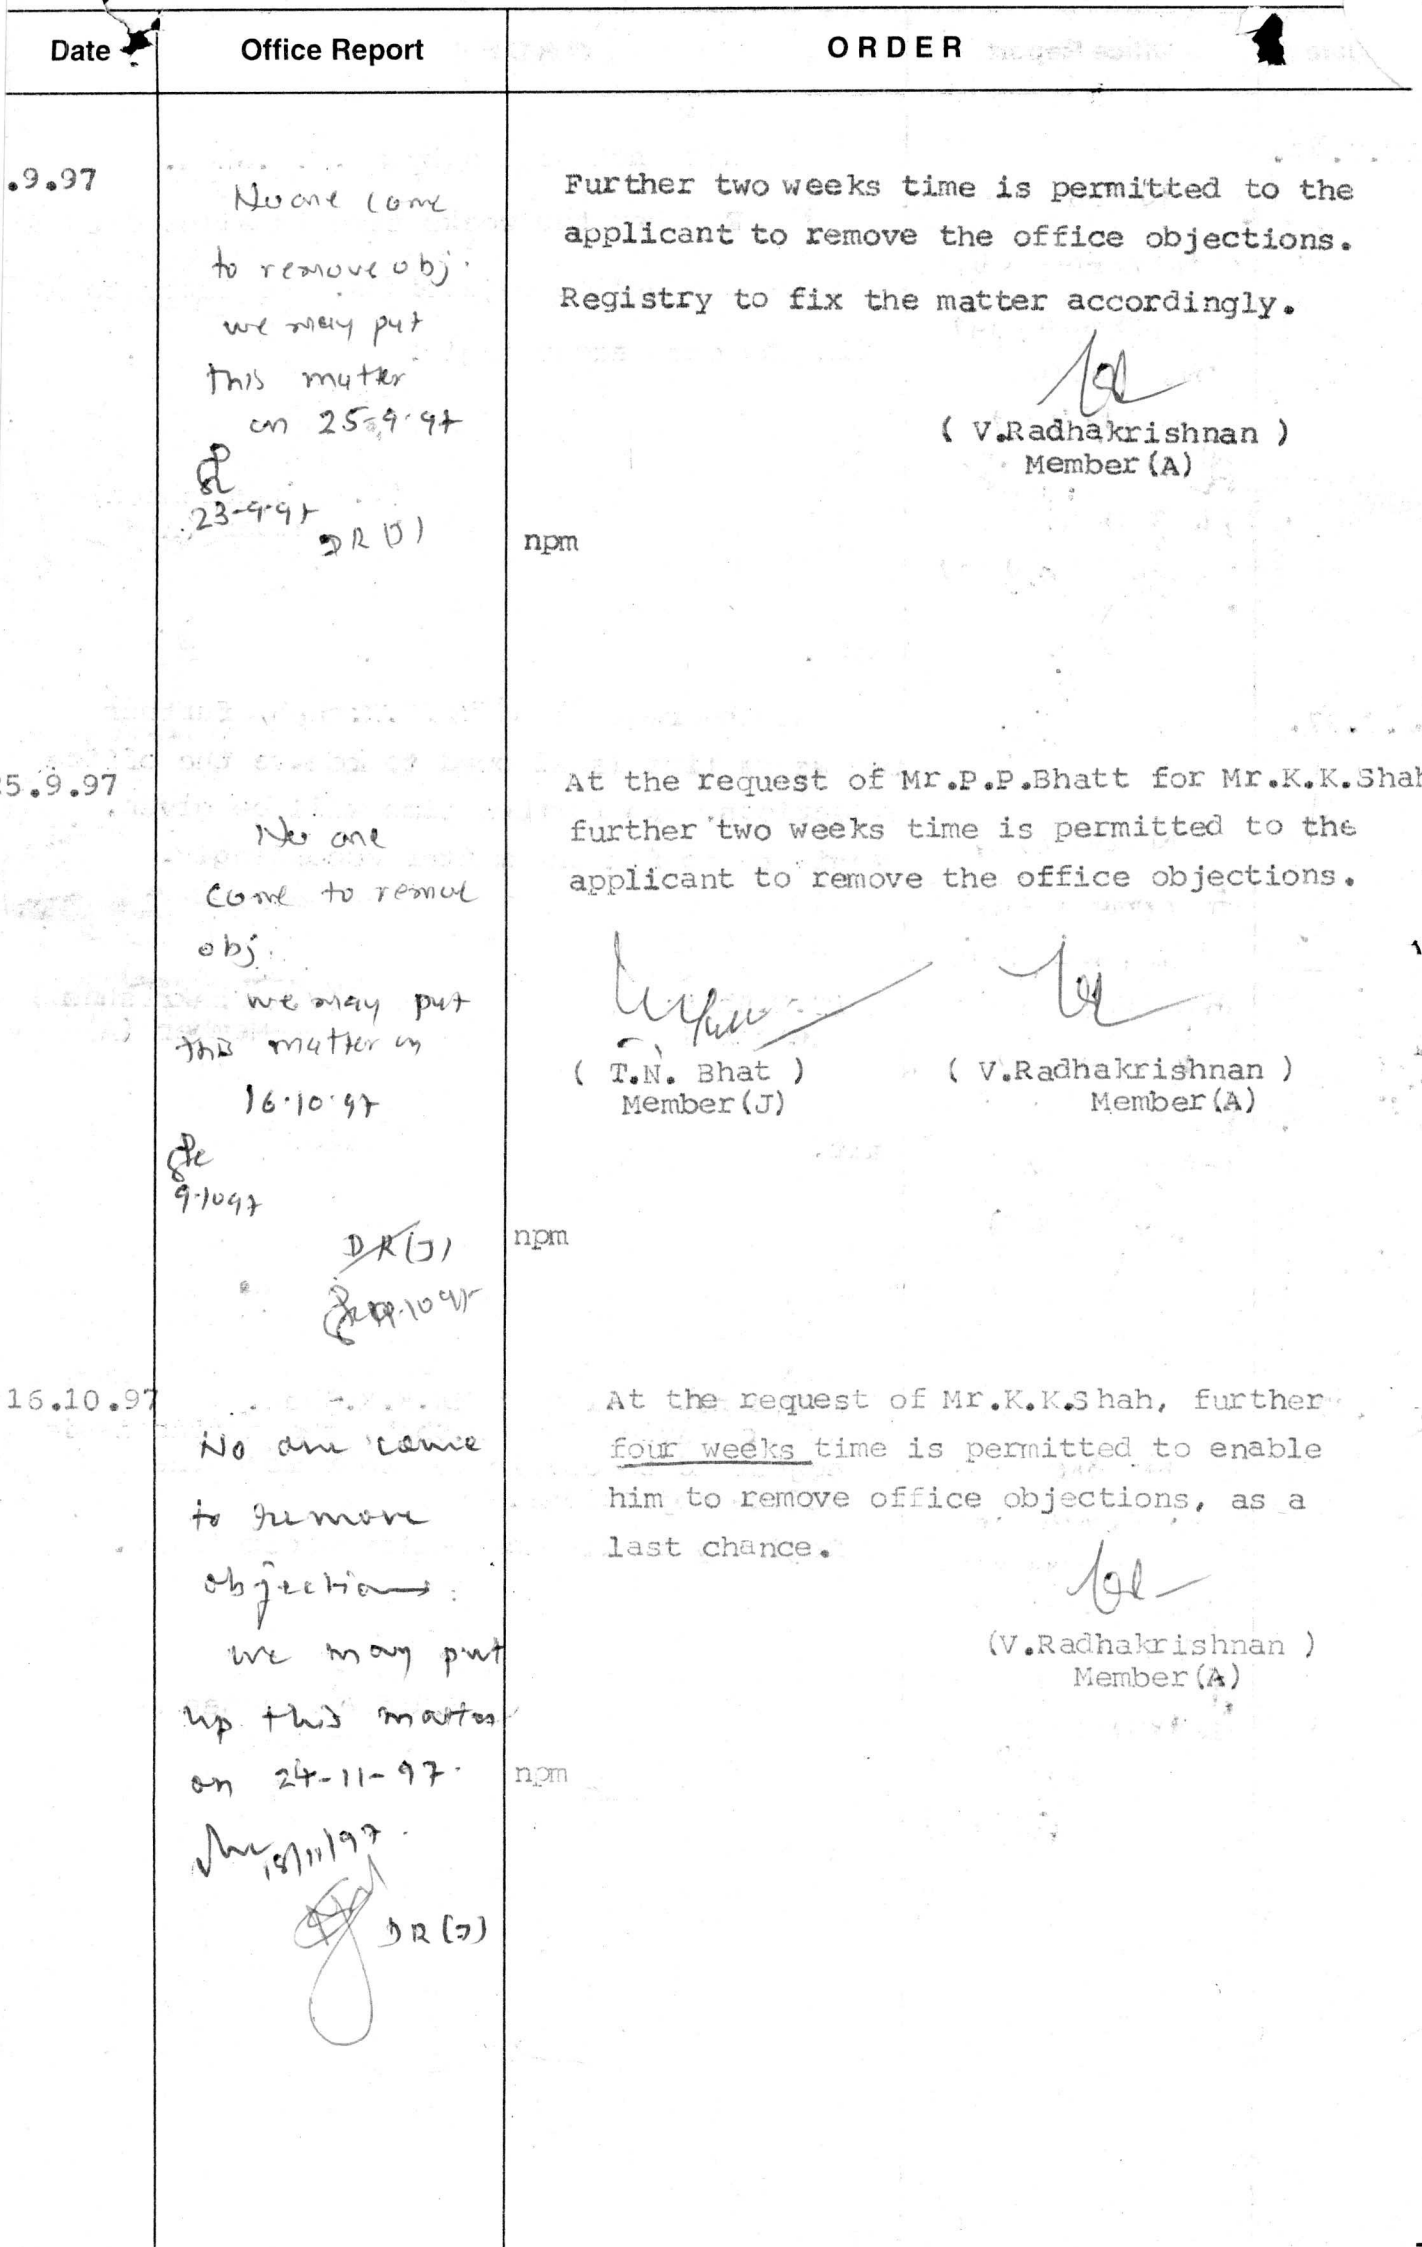 Date Office Report ORDER
.9.97
No one come
to remove obj.
we may put
this matter
on 25-9-97
23-9-97
DR(J)
Further two weeks time is permitted to the
applicant to remove the office objections.
Registry to fix the matter accordingly.
( V.Radhakrishnan )
Member(A)
npm
5.9.97
No one
come to remove
obj.
we may put
this matter on
16.10.97
9.10.97
DR(J)
At the request of Mr.P.P.Bhatt for Mr.K.K.Shah
further two weeks time is permitted to the
applicant to remove the office objections.
( T.N. Bhat ) ( V.Radhakrishnan )
Member(J) Member(A)
npm
16.10.97
No one come
to remove
objections.
we may put
up this matter
on 24-11-97.
18/11/97.
DR(J)
At the request of Mr.K.K.Shah, further
four weeks time is permitted to enable
him to remove office objections, as a
last chance.
(V.Radhakrishnan )
Member(A)
npm